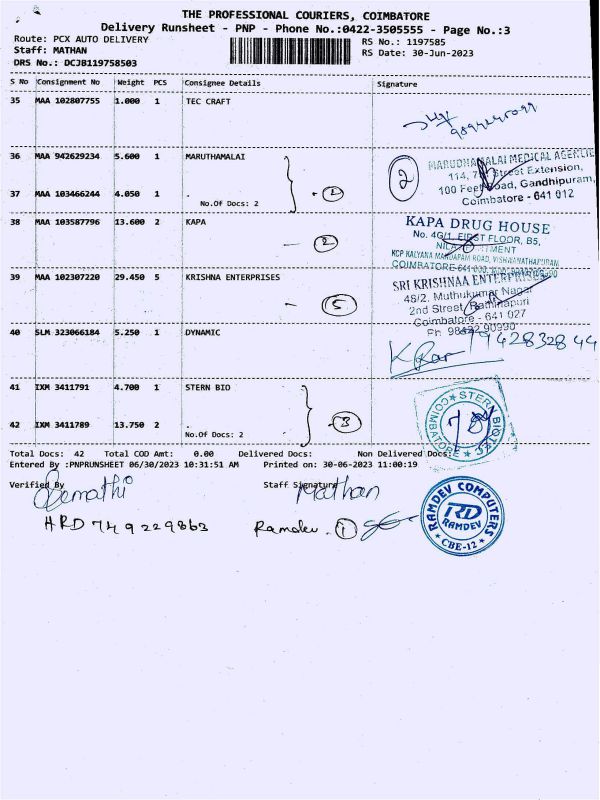 THE PROFESSIONAL COURIERS, COIMBATORE
Delivery Runsheet - PNP - Phone No.:0422-3505555 - Page No.:3
Route: PCX AUTO DELIVERY
RS No.: 1197585
Staff: MATHAN
RS Date: 30-Jun-2023
DRS No.: DCJB119758503
S No Consignment No Weight PCS Consignee Details Signature
35 MAA 102807755 1.000 1 TEC CRAFT
36 MAA 942629234 5.600 1 MARUTHAMALAI
37 MAA 103466244 4.050 1 .
No.Of Docs: 2
2
MARUDHAMALAI MEDICAL AGENCIE
Street Extension,
100 Feet Road, Gandhipuram,
Coimbatore - 641 012
38 MAA 103587796 13.600 2 KAPA
2
KAPA DRUG HOUSE
No. 46/1, FIRST FLOOR, B5,
KCP KALYANA MANDAPAM ROAD, VISHWANATHAPURAM
39 MAA 102307220 29.450 5 KRISHNA ENTERPRISES
5
SRI KRISHNAA ENTERPRISES
48/2, Muthukumar Nagar
2nd Street, Rathinapuri
Coimbatore - 641 027
Ph: 98422 90990
40 SLM 323066184 5.250 1 DYNAMIC
41 IXM 3411791 4.700 1 STERN BIO
42 IXM 3411789 13.750 2 .
No.Of Docs: 2
3
STERN BIOTEC
COIMBATORE
Total Docs: 42 Total COD Amt: 0.00 Delivered Docs: Non Delivered Docs:
Entered By :PNPRUNSHEET 06/30/2023 10:31:51 AM Printed on: 30-06-2023 11:00:19
Verified By
Staff Signature
Mathan
HRD 749229863
Ramdev. 1
RAMDEV COMPUTERS
RD
RAMDEV
CBE-12